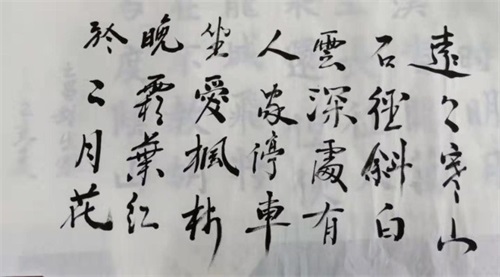 遠々寒山
石徑斜白
雲深處有
人家停車
坐愛楓林
晚霜葉红
於二月花